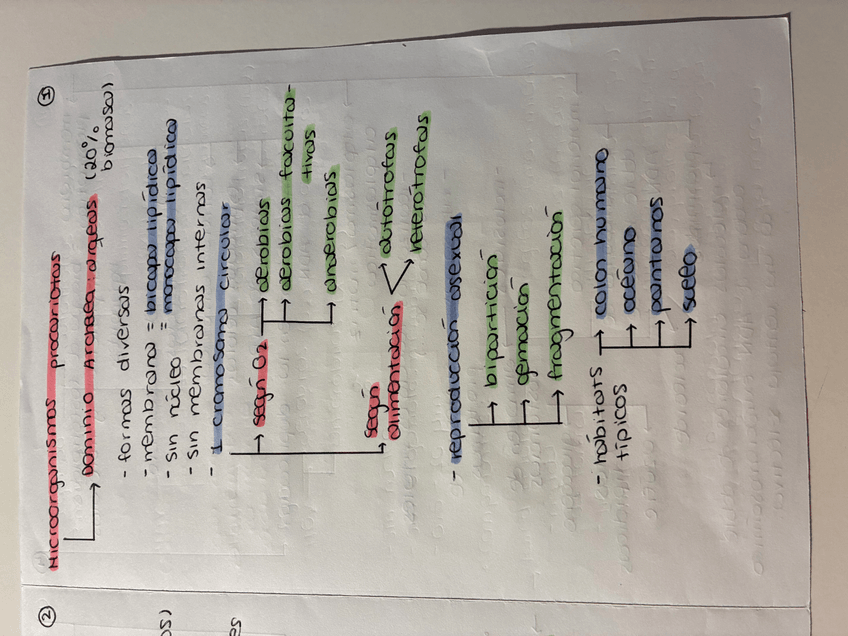 ③
Microorganismos procariotas
Dominio Archaea: arqeas (20%
biomasa)
- formas diversas
- membrana = bicapa lipídica
= monocapa lipídica
- sin núcleo
- sin membranas internas
- 1 cromosoma circular
según O2
aerobias
aerobias faculta-
tivas
anaerobias
según
alimentación
autótrofas
heterotrofas
- reproducción asexual
bipartición
gemación
fragmentación
- hábitats
típicos
colon humano
océano
pantanos
suelo
②
os)
es